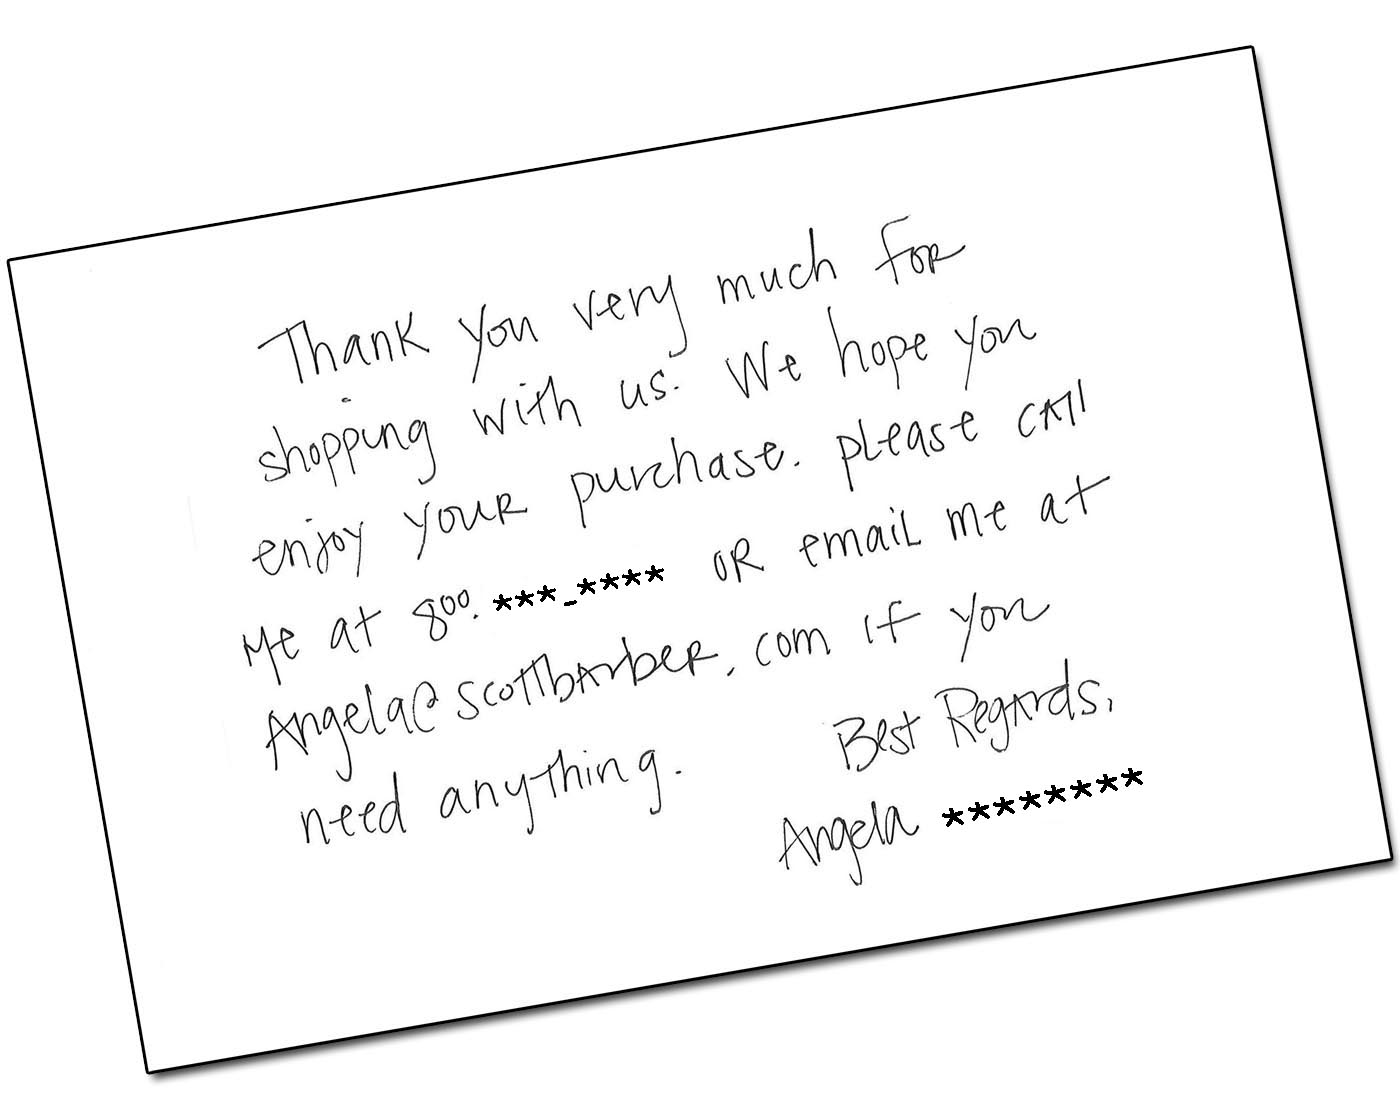 Thank you very much for
shopping with us. We hope you
enjoy your purchase. please call
me at 800. ***-**** OR email me at
Angela@scottbarber.com if you
need anything.
Best Regards,
Angela ********